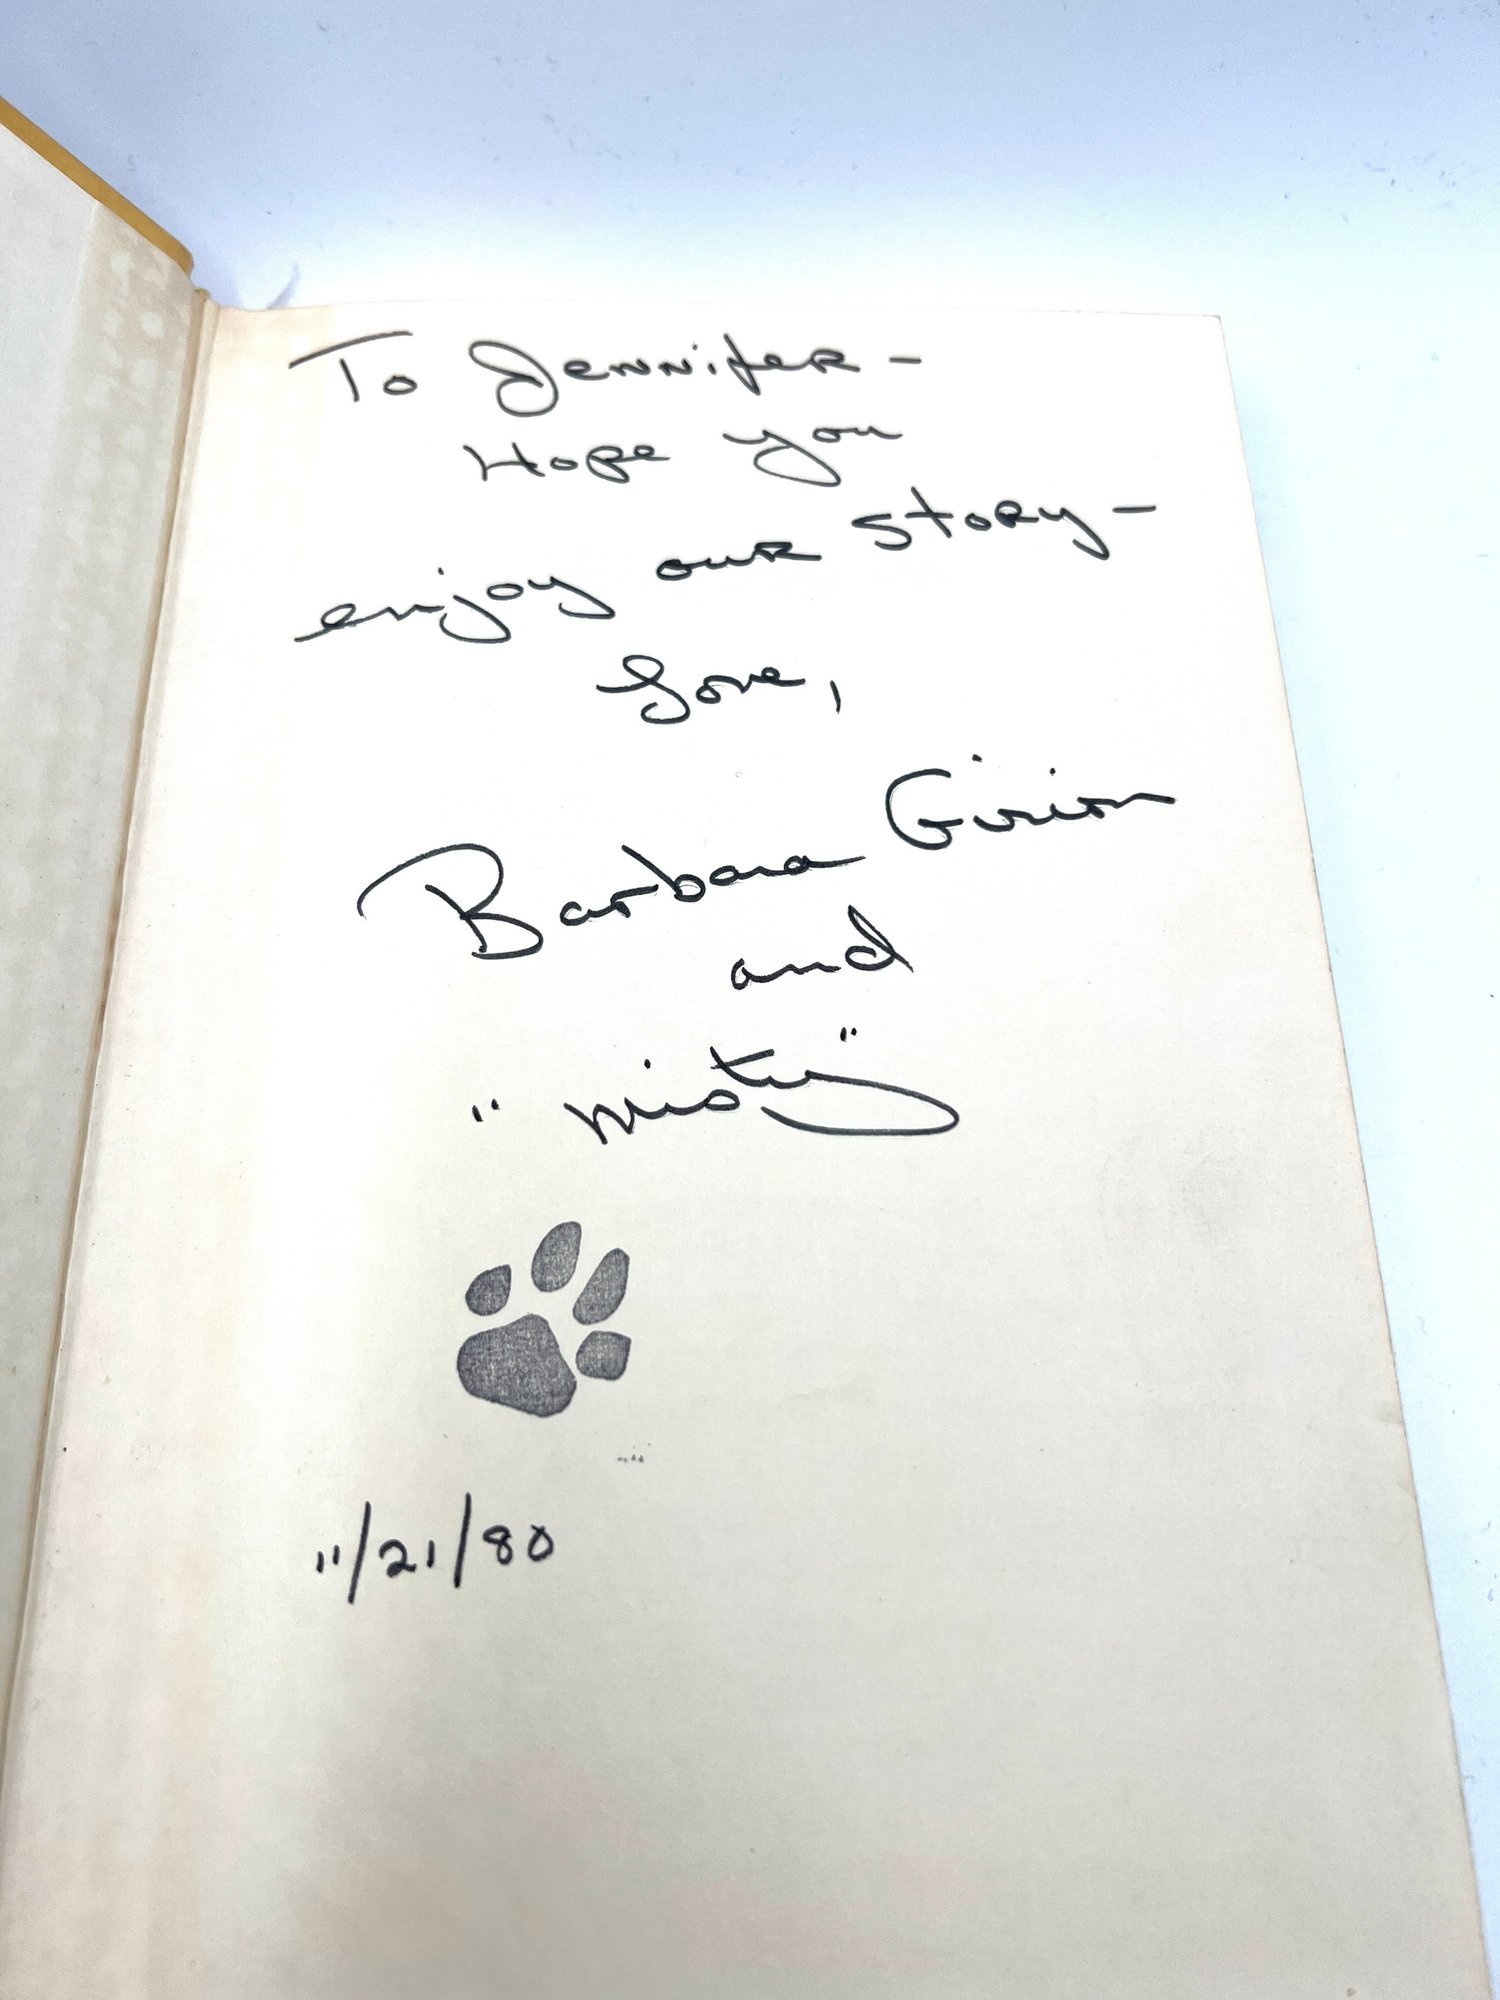 To Jennifer -
Hope you
enjoy our story -
Love,
Barbara Girion
and
"Misty"
11/21/80